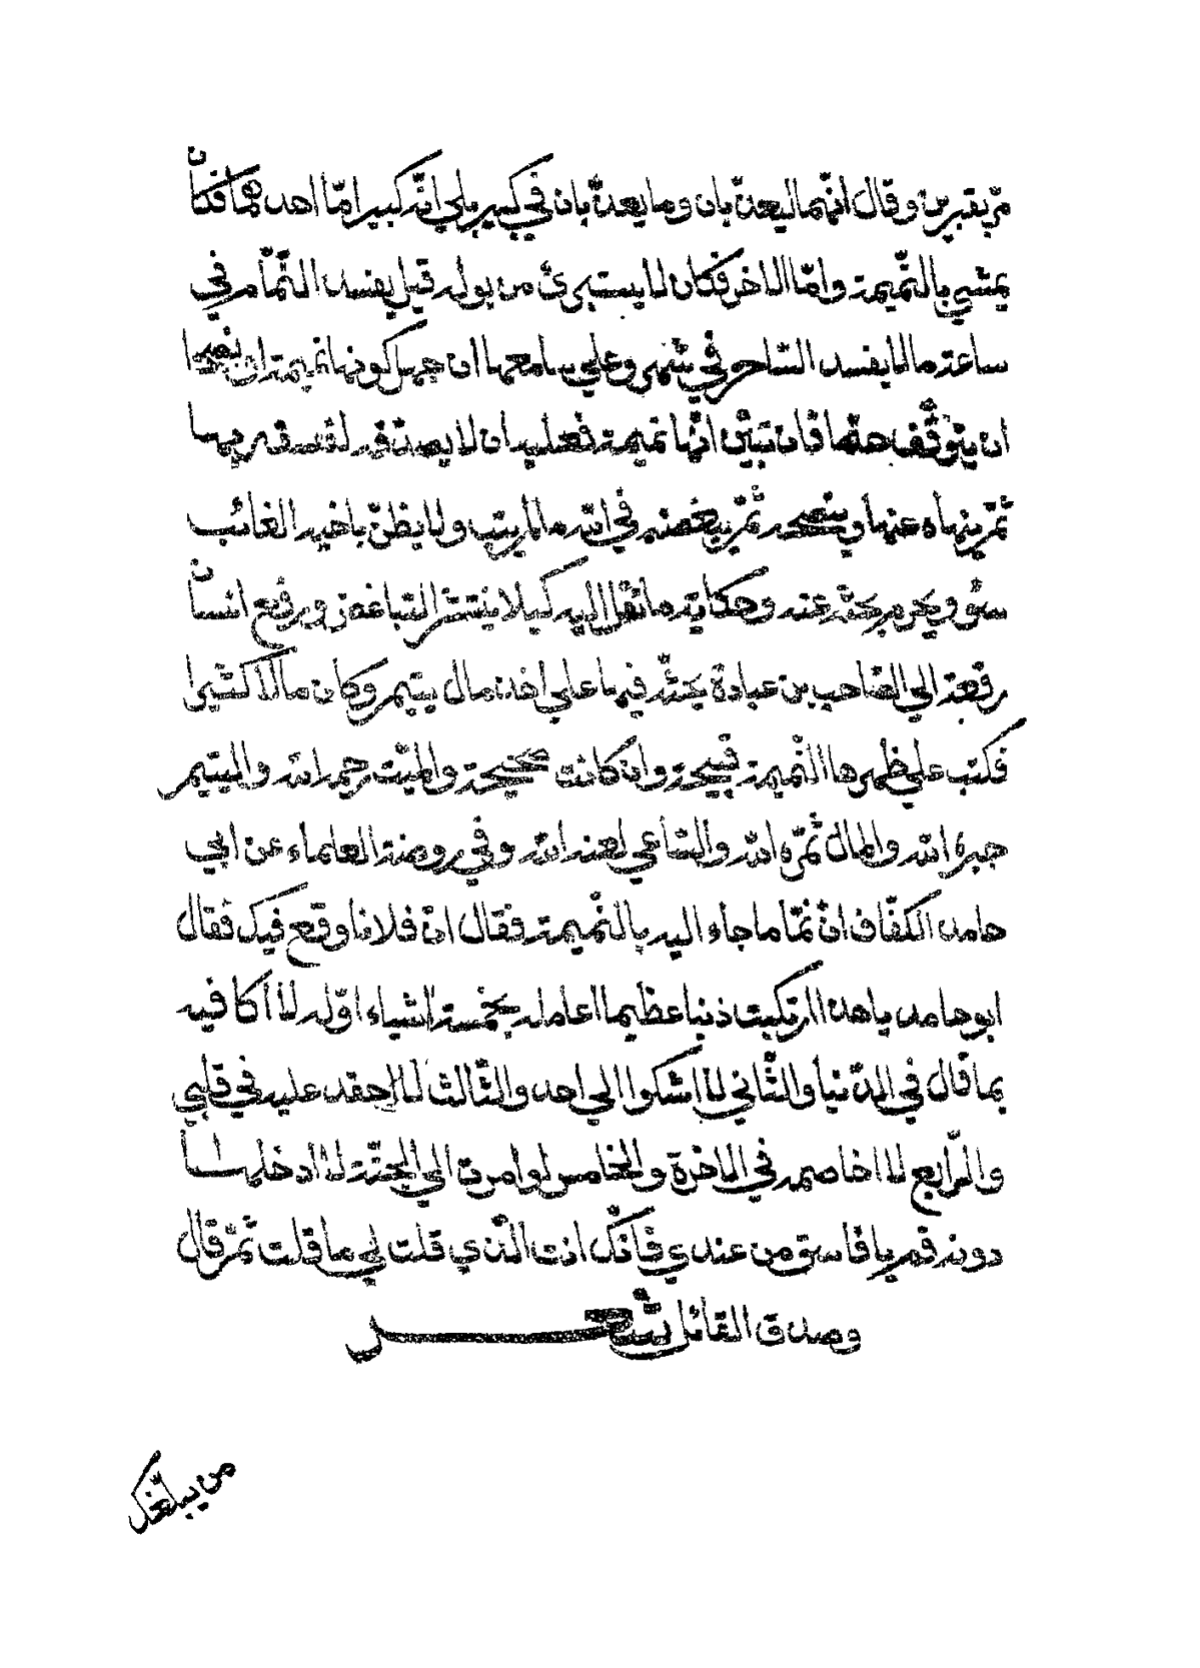 مرّ بقبرين وقال انّهما ليعذّبان وما يعذّبان في كبير بلي انّه كبير امّا احدهما فكان
يمشي بالنّميمة وامّا الاخر فكان لا يستبرئ من بوله قيل يفسد النّمّام في
ساعة ما لا يفسد السّاحر في شهر وعلي سامعها ان جهل كونها نميمة او نصحا
ان يتوقّف حتما فان تبيّن انّها نميمة فعليه ان لا يصدّقه لفسقه بها
ثمّ ينهاه عنها وينصحه ثمّ يبغضه في الله ما لم يتب ولا يظنّ باخيه الغائب
سوء ويحرم بحثه عنه وحكاية ما نقل اليه كيلا ينتشر التباغض ورفع انسان
رقعة الي الصّاحب بن عبادة يحثّه فيها علي اخذ مال يتيم وكان مالا كثيرا
فكتب علي ظهرها النّميمة قبيحة وان كانت صحيحة والميّت رحمه الله واليتيم
جبره الله والمال ثمّره الله والسّاعي لعنه الله وفي روضة العلماء عن ابي
حامد الكفّاف انّ نمّاما جاء اليه بالنّميمة فقال انّ فلانا وقع فيك فقال
ابو حامد يا هذا ارتكبت ذنبا عظيما اعامله بخمسة اشياء اوّله لا اكافيه
بما قال في الدّنيا والثّاني لا اشكوا الي احد والثّالث لا احقد عليه في قلبي
والرّابع لا اخاصمه في الاخرة والخامس لو امرت الي الجنّة لا ادخلها
دونه قم يا فاسق من عندي فانّك انت الّذي قلت لي ما قلت ثمّ قال
وصدق القائل شعر
من يبلّغك